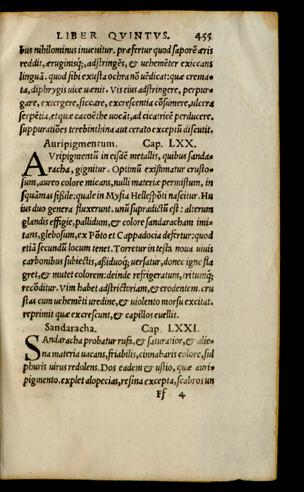 LIBER QVINTVS. 455
bus nihilominus inuenitur. præfertur quod saporē æris
reddit, æruginisq́;, adstringēs, & uehemēter exiccans
linguā. quod sibi exusta ochra nō uēdicat: quæ crema-
ta, diphrygis uice uænit. Vis eius adstringere, perpur-
gare, exicrgere, siccare, excrescentia cōsumere, ulcera
serpētia, etquæ cacoēthe uocāt, ad cicatricē perducere.
suppurationes terebinthina aut cerato exceptū discutit.
Auripigmentum. Cap. LXX.
AVripigmentū in eisdē metallis, quibus sanda-
racha, gignitur. Optimū existimatur crusto-
sum, aureo colore micans, nulli materiæ permistum, in
squāmas fissile: quale in Mysia Hellespōti nascitur. Hu
ius duo genera fluxerunt. unū suprædictū est: alterum
glandis effigie, pallidum, & colore sandaracham imi-
tans, glebosum, ex Pōto et Cappadocia defertur: quod
etiā secundū locum tenet. Torretur in testa noua uiuis
carbonibus subiectis, assiduoq́; uersatur, donec igne fla
gret, & mutet colorem: deinde refrigeratum, tritumq́;
recōditur. Vim habet adstrictoriam, & erodentem. cru
stas cum uehemēti uredine, & uiolento morsu excitat.
reprimit quæ excrescunt, & capillos euellit.
Sandaracha. Cap. LXXI.
SAndaracha probatur rufa, & saturatior, & alie-
na materia uacans, friabilis, cinnabaris colore, sul
phuris uirus redolens. Dos eadem & ustio, quæ auri-
pigmento. explet alopecias, resina excepta, scabros un
Ff 4